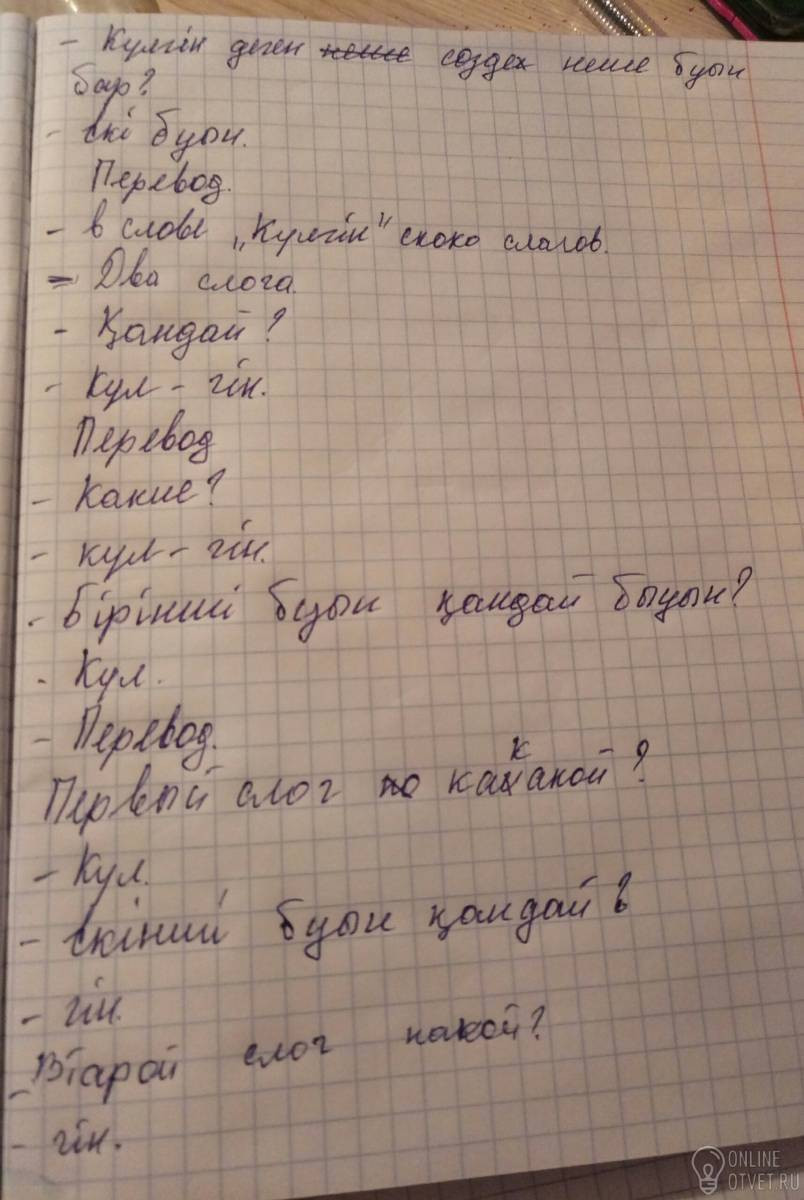 - Кулгін деген неше создех неше буын
бар?
- екі буын.
Перевод.
- в слове „Кулгін" скоко слагов.
- Два слога.
- Қандай?
- Кул - гін.
Перевод
- Какие?
- кул - гін.
- Бірінші буын қандай быуын?
- Кул.
- Перевод.
Первый слог по какакой?
- Кул.
- екінший буын қандай?
- гін.
- Втарой слог какой?
- гін.
ONLINE
OTVET.RU